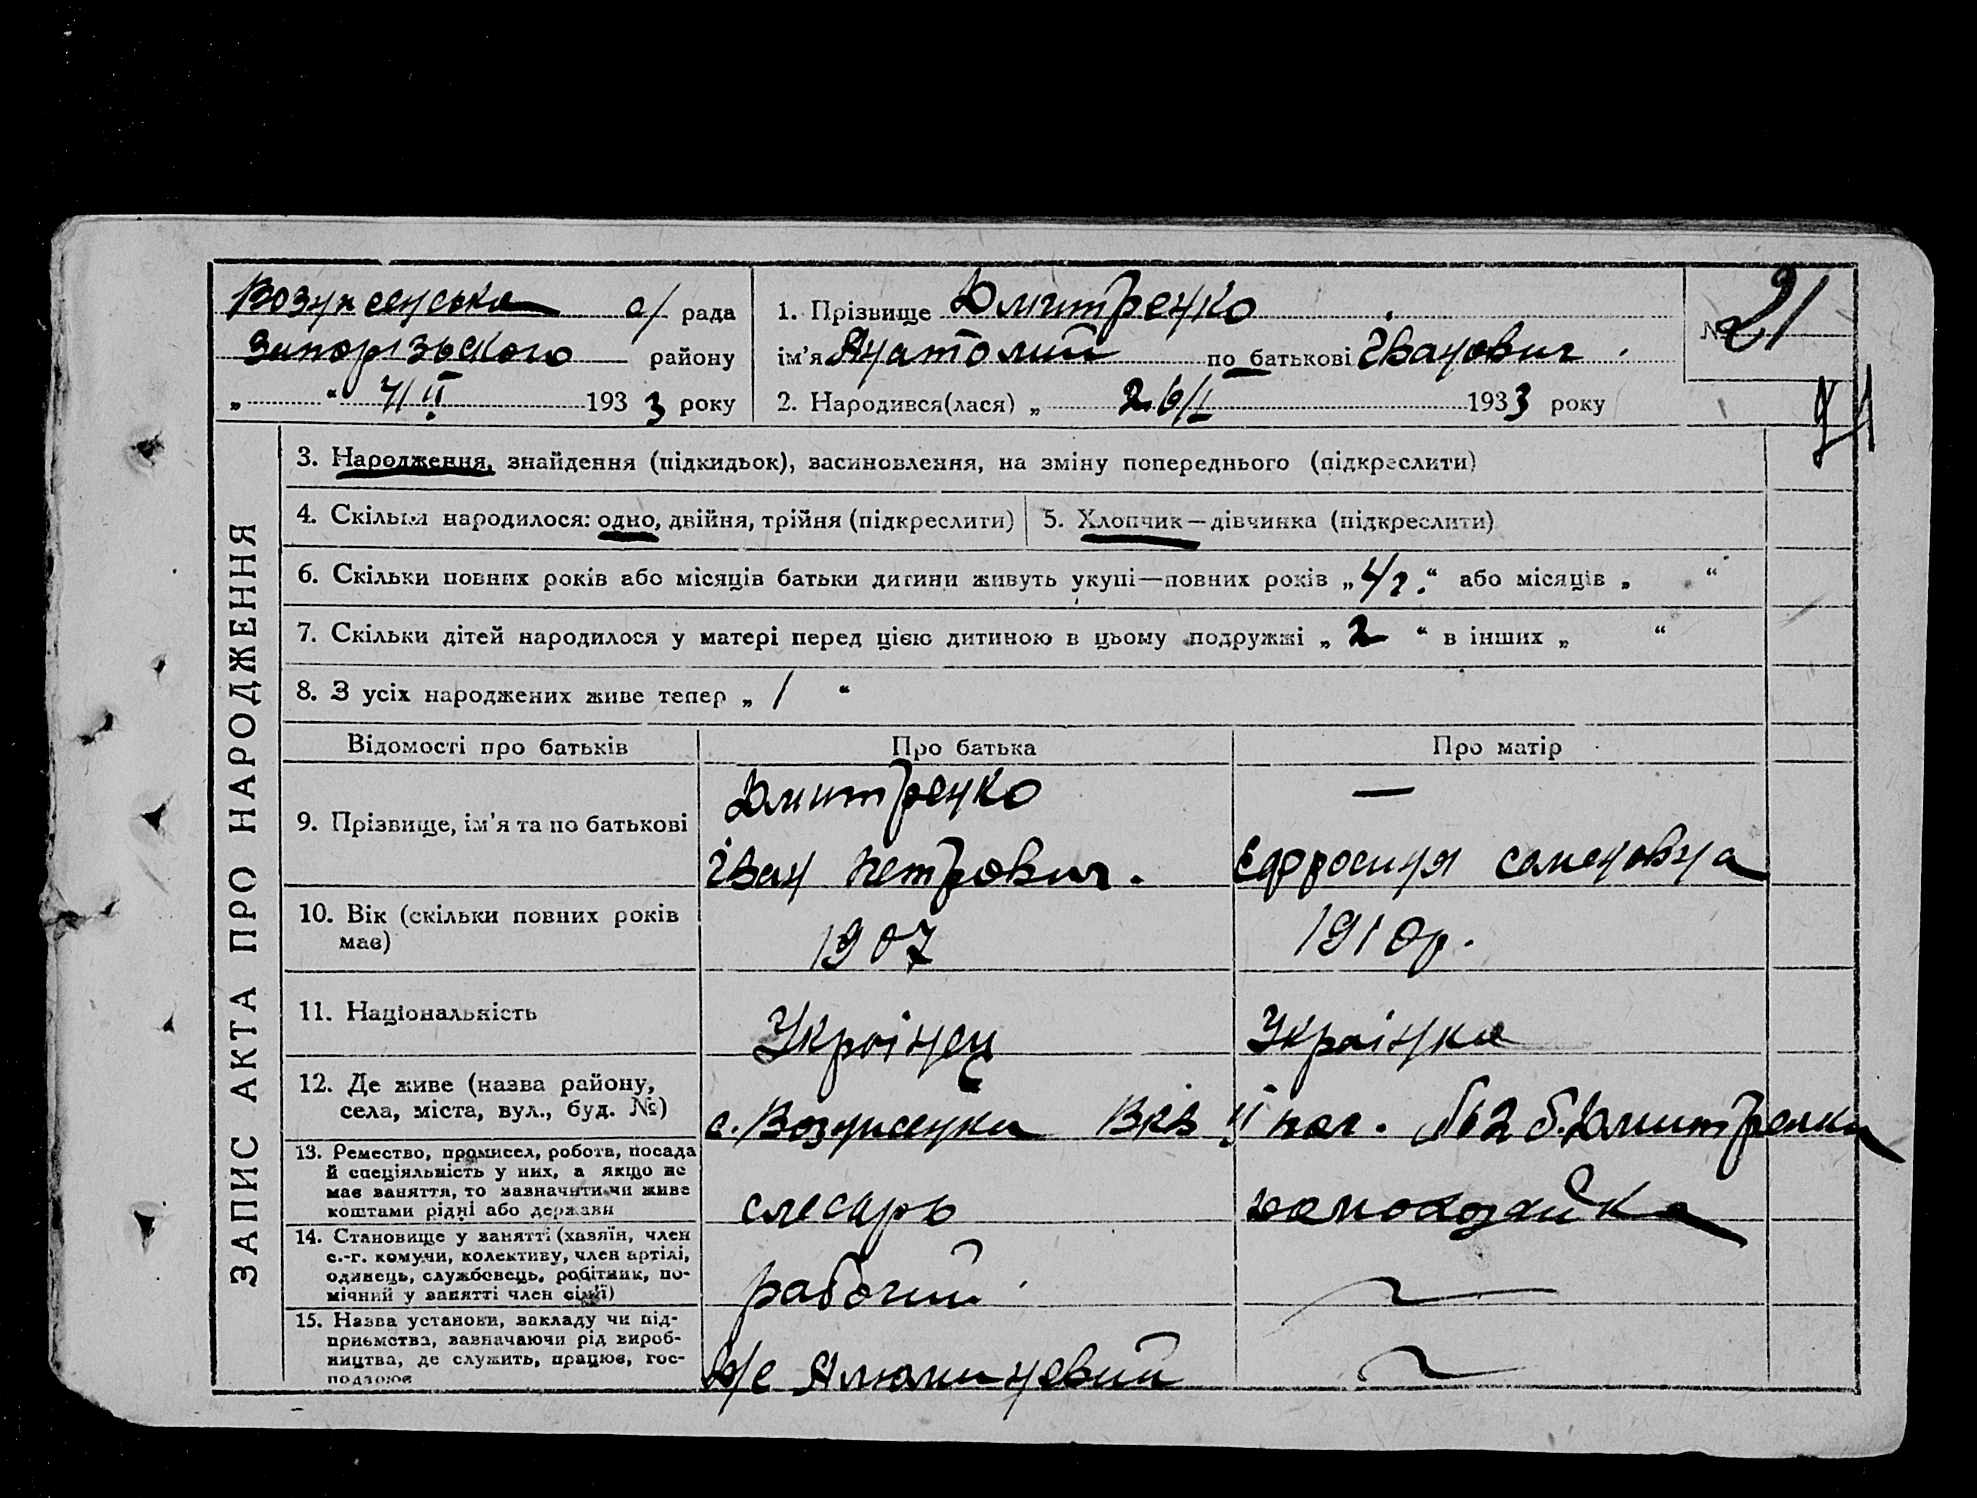 Вознесенська с/ рада
Запорізького району
„ “ 4/II 1933 року
1. Прізвище Дмитренко
ім’я Анатолий по батькові Іванович
2. Народився(лася) „ 26/I 1933 року
№ 21
21
ЗАПИС АКТА ПРО НАРОДЖЕННЯ
3. Народження, знайдення (підкидьок), васиновлення, на зміну попереднього (підкреслити)
4. Скільки народилося: одно, двійня, трійня (підкреслити)
5. Хлопчик — дівчинка (підкреслити)
6. Скільки повних років або місяців батьки дитини живуть укупі—повних років „4/г.“ або місяців „ “
7. Скільки дітей народилося у матері перед цією дитиною в цьому подружжі „ 2 “ в інших „ “
8. З усіх народжених живе тепер „ 1 “
Відомості про батьків Про батька Про матір
9. Прізвище, ім’я та по батькові
Дмитренко —
Іван Петрович. Єфросиния Семеновна
10. Вік (скільки повних років
має)
1907 1910р.
11. Національність
Українец Українка
12. Де живе (назва району,
села, міста, вул., буд. №)
с. Вознесенка ВКВ II пос. №2 б. Дмитренка
13. Ремество, промисел, робота, посада
й спеціяльність у них, а якщо не
має заняття, то зазначити чи живе
коштами рідні або держави
слесарь домохозяйка
14. Становище у занятті (хазяїн, член
с.-г. комуни, колективу, член артілі,
одинець, службовець, робітник, по-
мічний у занятті член сім’ї)
рабочий
15. Назва установи, закладу чи під-
приємства, зазначаючи рід вироб-
ництва, де служить, працює, гос-
подарює
Алюминевий